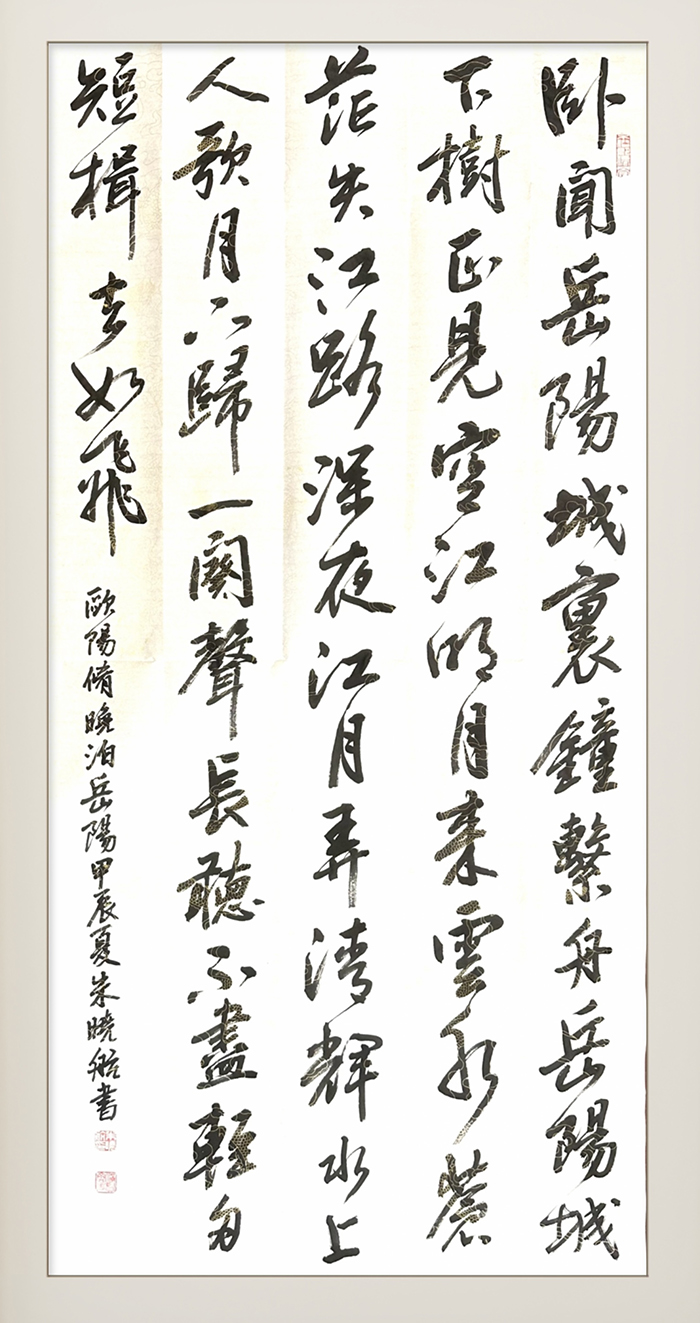 卧聞岳陽城裏鐘繫舟岳陽城
下樹正見空江明月來雲水蒼
茫失江路深夜江月弄清輝水上
人歌月下歸一闋聲長聽不盡輕舟
短楫去如飛
歐陽脩晚泊岳陽甲辰夏朱曉航書